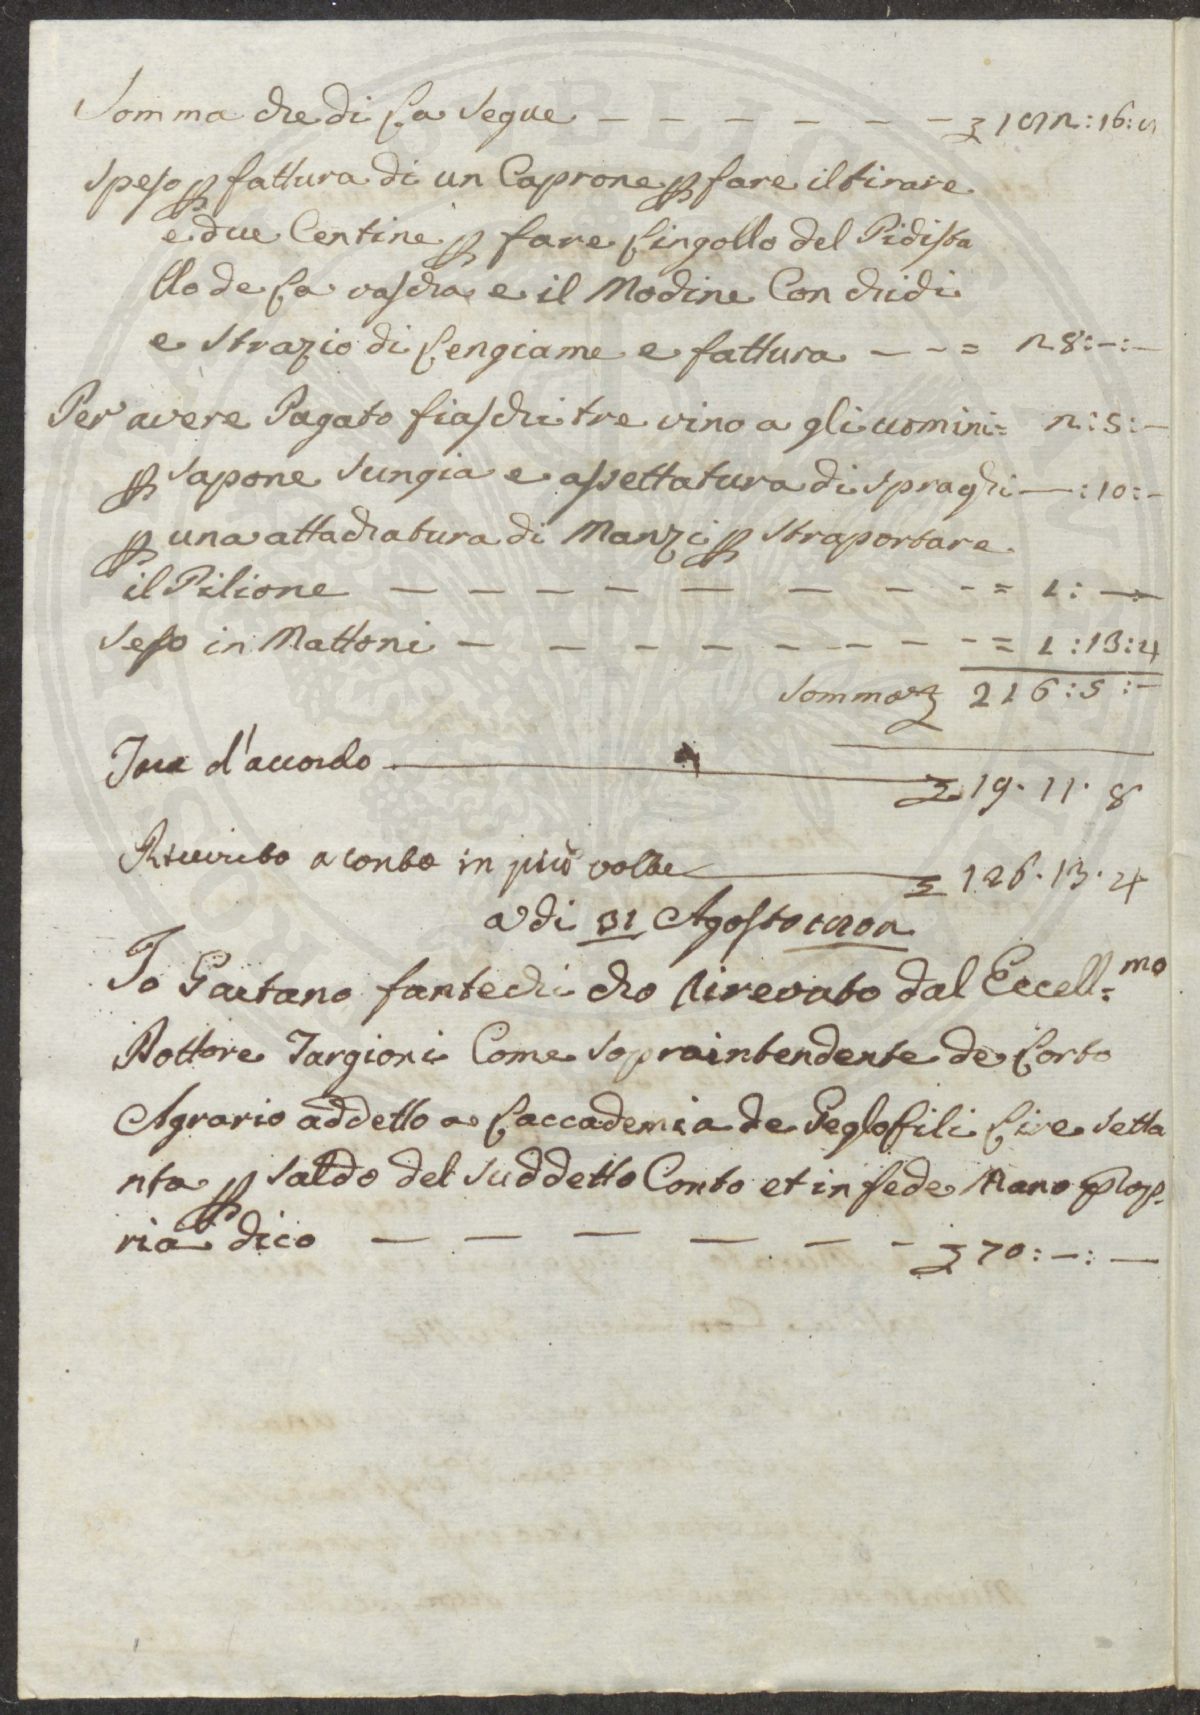 Somma che di La Segue — — — — — — £ 182:16:8
Speso p fattura di un Caprone p fare il tirare
e due Centine p fare Lingollo del Pidista
llo de La vascha e il Modine Con chidi
e Strazio di Lengiame e fattura — - = 28:-:-
Per avere Pagato fiaschi tre vino a gli uomini= 2:5:-
p Sapone Sungia e assettatura di Spraghi —:10:-
p una attachatura di Manzi p Straportare
il Pilione — — — — — — — - = 1:—
Speso in Mattoni — — — — — — — - = 1:13:4
Somma £ 216:5:-
Tara d'accordo — £ 19.11.8
Ricevuto a conto in più volte — £ 126.13.4
a di 31 Agosto 1802
Io Gaetano fantechi cho Rirevuto dal Eccell=mo
Dottore Targioni Come Sopraintendente de Lorto
Agrario addetto a Laccademia de Geglofili Lire Setta
nta p Saldo del Suddetto Conto et in fede Mano prop-
ria dico — — — — — - - £ 70:-:—